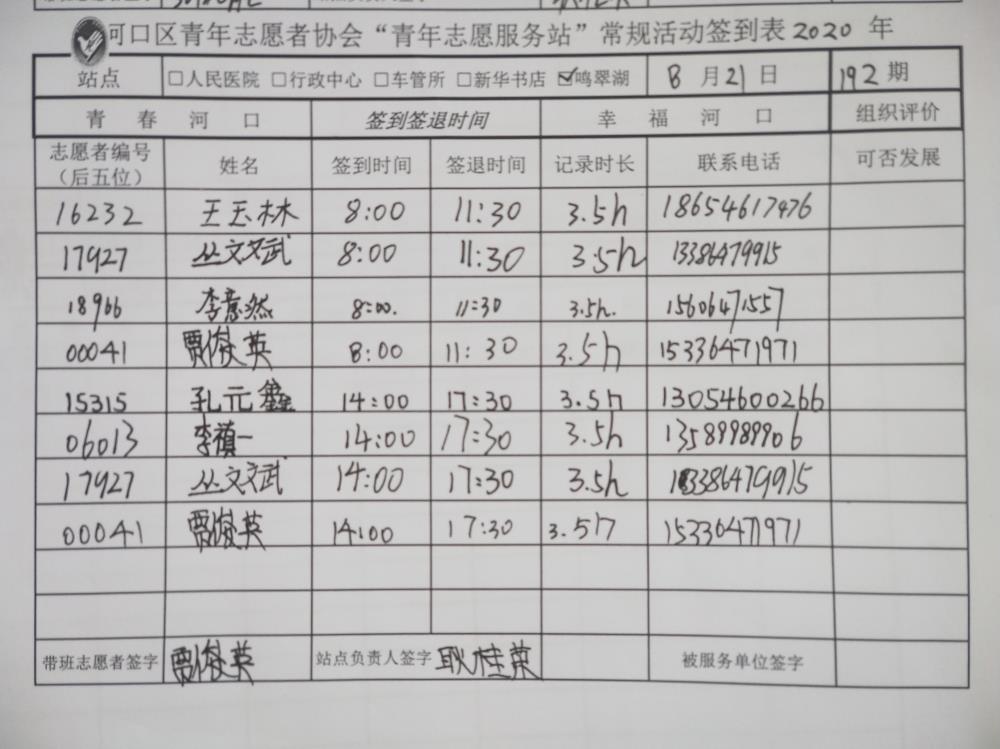 河口区青年志愿者协会“青年志愿服务站”常规活动签到表 2020 年
站点 □人民医院 □行政中心 □车管所 □新华书店 ☑鸣翠湖 8 月 21 日 192 期
青 春 河 口 签到签退时间 幸 福 河 口 组织评价
志愿者编号（后五位） 姓名 签到时间 签退时间 记录时长 联系电话 可否发展
16232 王玉林 8:00 11:30 3.5h 18654617476
17927 丛文斌 8:00 11:30 3.5h 13386479915
18966 李意然 8:00. 11:30 3.5h. 15606471557
00041 贾俊英 8:00 11:30 3.5h 15336471971
15315 孔元鑫 14:00 17:30 3.5h 13054600266
06013 李禛一 14:00 17:30 3.5h 13589989906
17927 丛文斌 14:00 17:30 3.5h 13386479915
00041 贾俊英 14:00 17:30 3.5h 15336471971
带班志愿者签字 贾俊英 站点负责人签字 耿桂荣 被服务单位签字